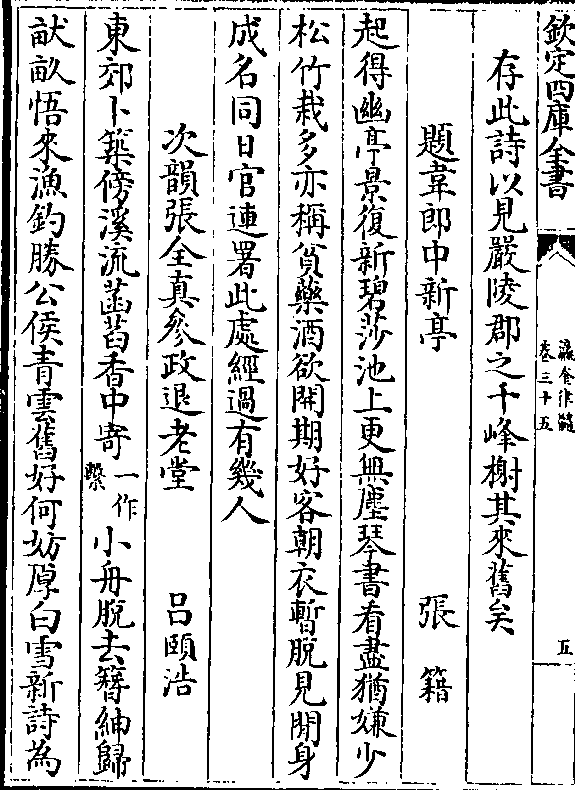 欽定四庫全書
瀛奎律髓
卷三十五
五
存此詩以見嚴陵郡之千峰榭其來舊矣
題韋郎中新亭 張籍
起得幽亭景復新碧莎池上更無塵琴書看盡猶嫌少
松竹栽多亦稱貧藥酒欲開期好客朝衣暫脫見閒身
成名同日官連署此處經過有幾人
次韻張全真叅政退老堂 吕頤浩
東郊卜築傍溪流菡萏香中寄一作繫小舟脫去簪紳歸
畎畝悟來漁釣勝公侯青雲舊好何妨厚白雪新詩為